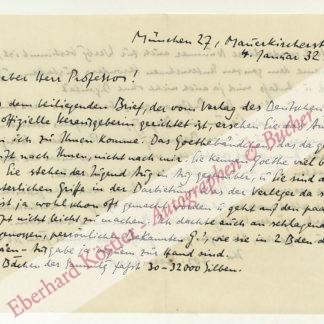 München 27, Mauerkircherst
4. Januar 32
eber Herr Professor!
s dem beiliegenden Brief, der vom Verlag des Deutschen
offizielle Herausgeberin gerichtet ist, ersehen Sie
n ich zu Ihnen komme. Das Goethebändchen, das da
nach Ihnen, nicht nach mir. Sie kennen Goethe viel b
Sie stehen der Jugend Aug in Aug gegenüber, u. Sie sind
sterlichen Griffe in der Darbietung. Was der Verleger da
ist ja wohl schon oft gemacht worden u. geht auf den
pt nicht leicht zu machen. Ich dachte auch an schlagende
genossen, persönlicher Bekannter G.'s, wie sie in 2 Bden
Ausgabe ja zur Hand sind.
Bdchen der Sammlg fasst 30-32000 Silben.
Eberhard Köstler - Autographen & Bücher